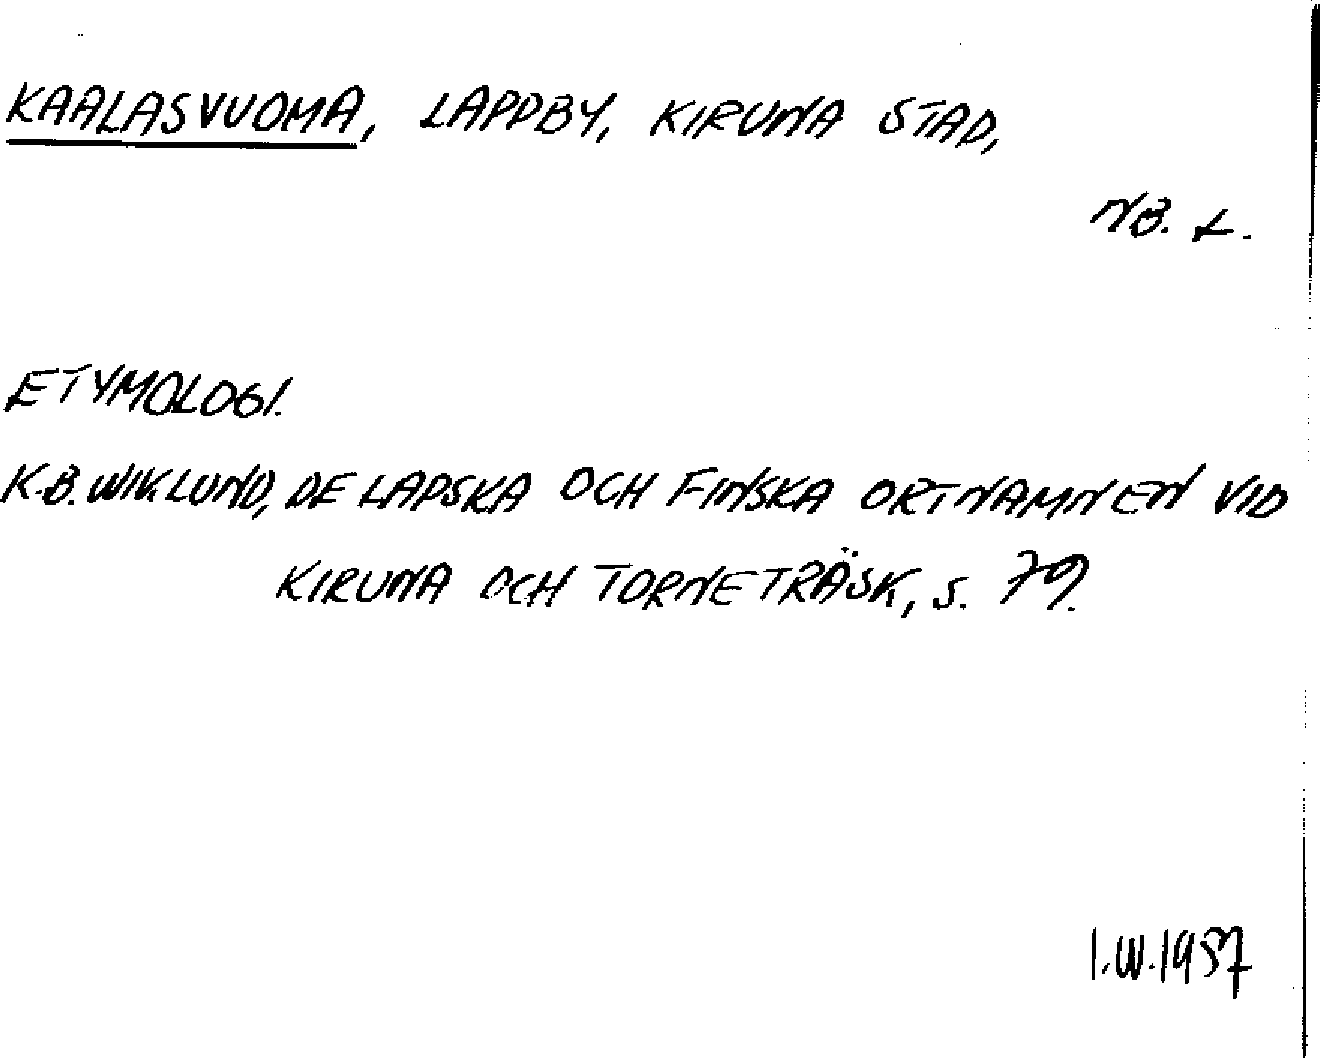 KAALASVUOMA, LAPPBY, KIRUNA STAD,
NB. L.
ETYMOLOGI.
K.B. WIKLUND, DE LAPSKA OCH FINSKA ORTNAMNEN VID
KIRUNA OCH TORNETRÄSK, S. 79.
I.W.1957